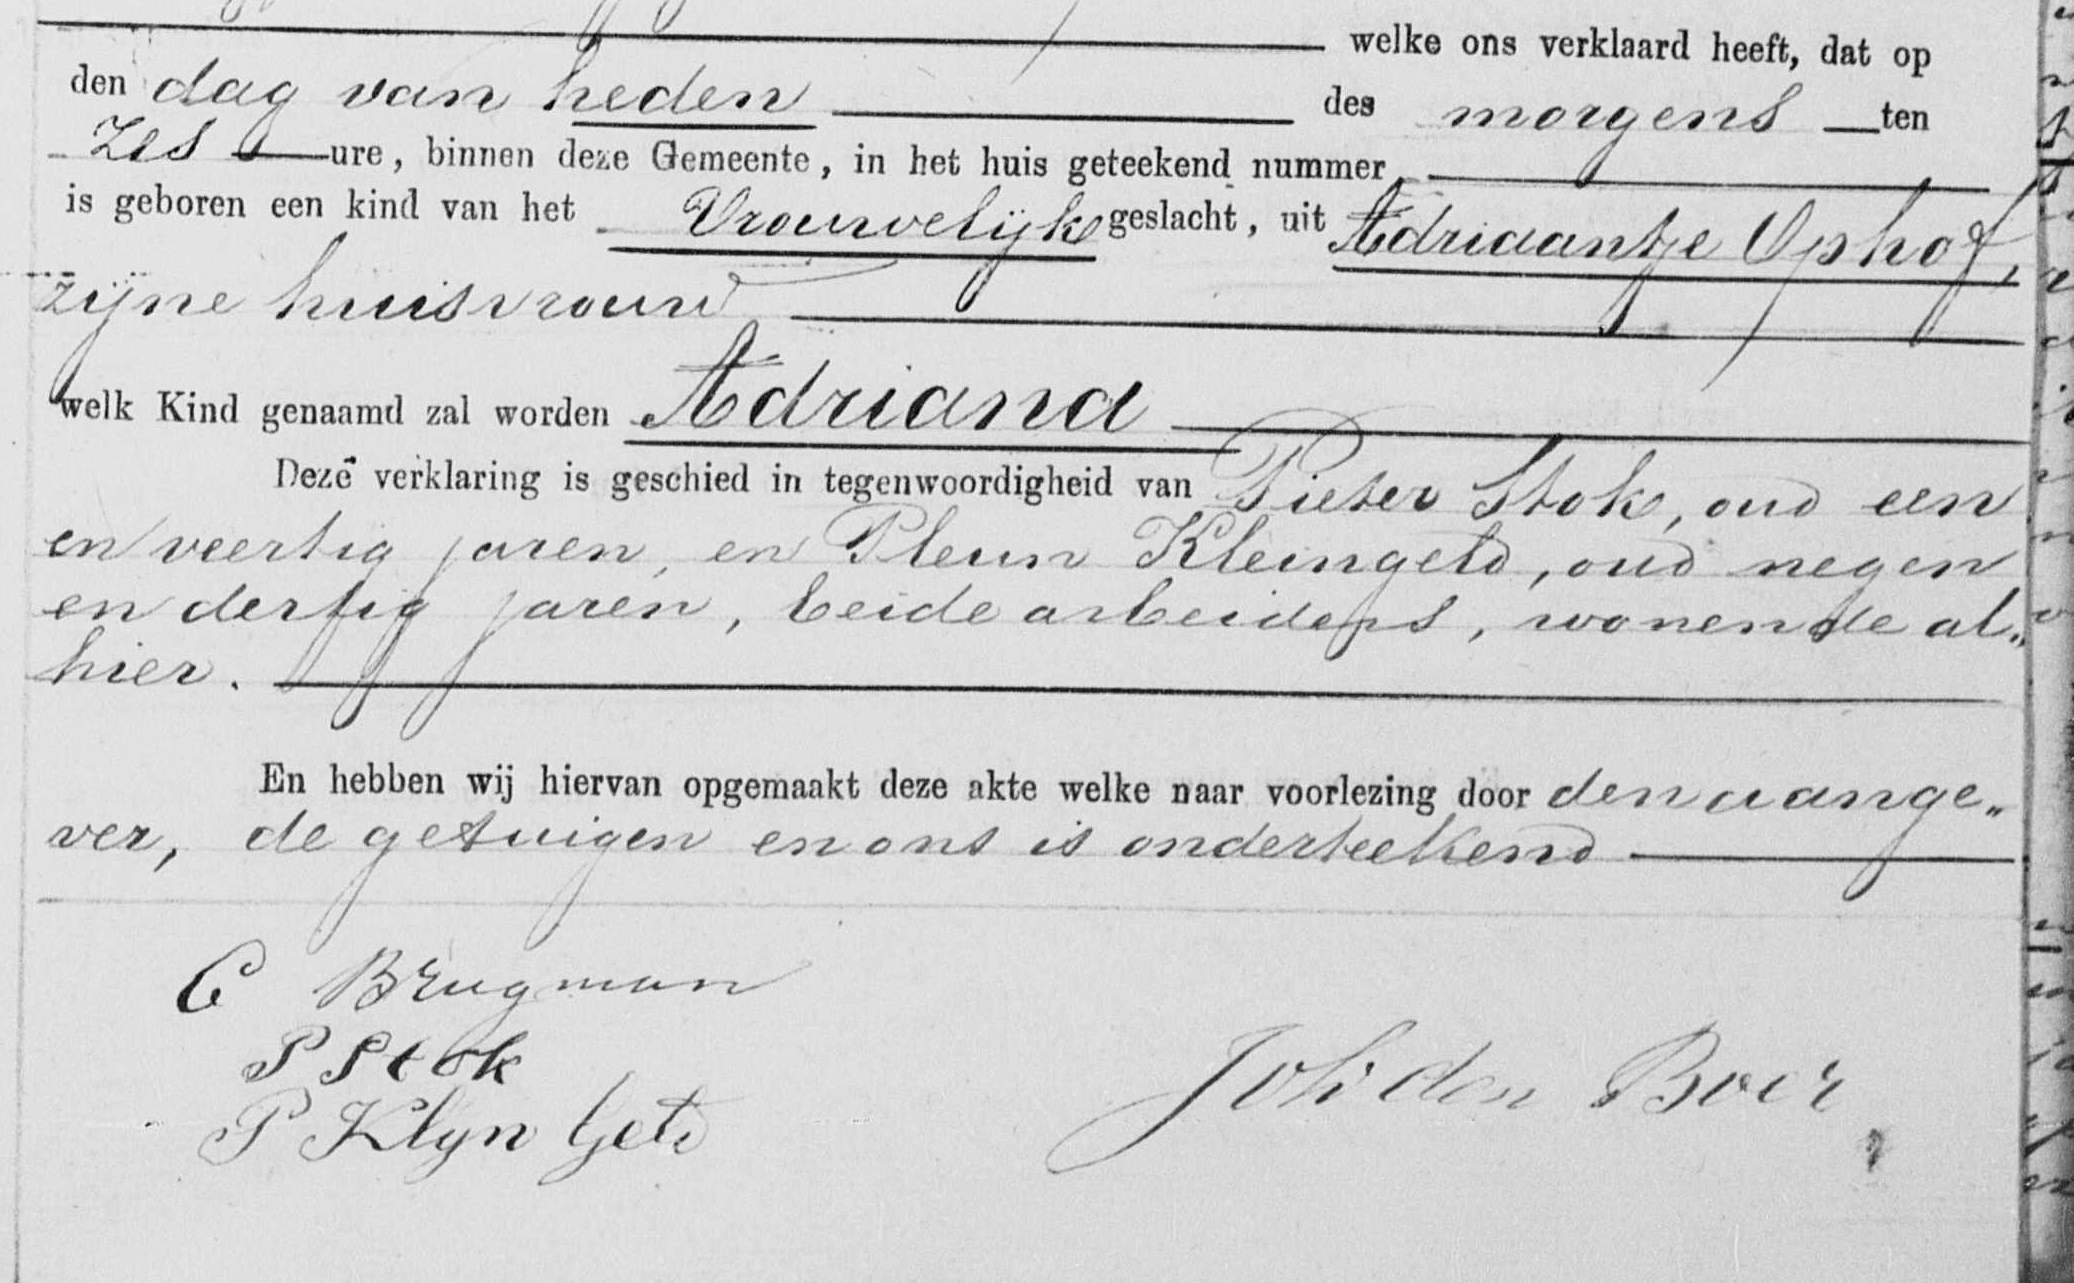 welke ons verklaard heeft, dat op
den dag van heden des morgens ten
zes ure, binnen deze Gemeente, in het huis geteekend nummer
is geboren een kind van het Vrouwelijk geslacht, uit Adriaantje Ophof,
zijne huisvrouw
welk Kind genaamd zal worden Adriana
Deze verklaring is geschied in tegenwoordigheid van Pieter Stok, oud een
en veertig jaren, en Pleun Kleingeld, oud negen
en dertig jaren, beide arbeiders, wonende al„
hier.
En hebben wij hiervan opgemaakt deze akte welke naar voorlezing door den aange„
ver, de getuigen en ons is onderteekend
C Brugman
P Stok
P Klyn Geld
Joh den Boer